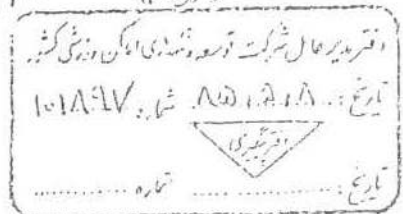 دفتر مدیر عامل شرکت توسعه و نگهداری اماکن ورزشی کشور
تاریخ: ۸۵،۵،۸ شماره:
دفتر پیگیری
تاریخ: .................. شماره ..................